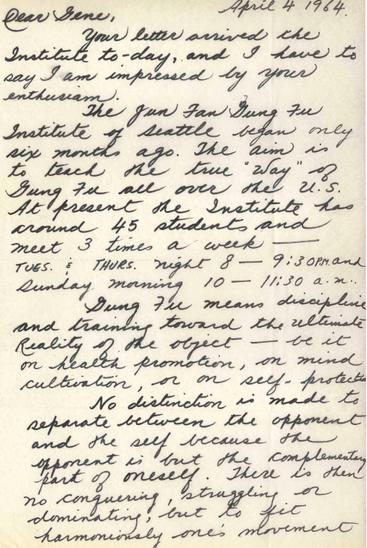 April 4 1964.
Dear Gene,
Your letter arrived the
Institute to-day, and I have to
say I am impressed by your
enthusiasm.
The Jun Fan Gung Fu
Institute of Seattle began only
six months ago. The aim is
to teach the true "Way" of
Gung Fu all over the U.S.
At present the Institute has
around 45 students and
meet 3 times a week —
TUES. & THURS. night 8 — 9:30PM and
Sunday morning 10 — 11:30 a.m..
Gung Fu means discipline
and training toward the Ultimate
Reality of the object — be it
on health promotion, on mind
cultivation, or on self-protection
No distinction is made to
separate between the opponent
and the self because the
opponent is but the complementary
part of oneself. There is then
no conquering, struggling or
dominating, but to fit
harmoniously one's movement